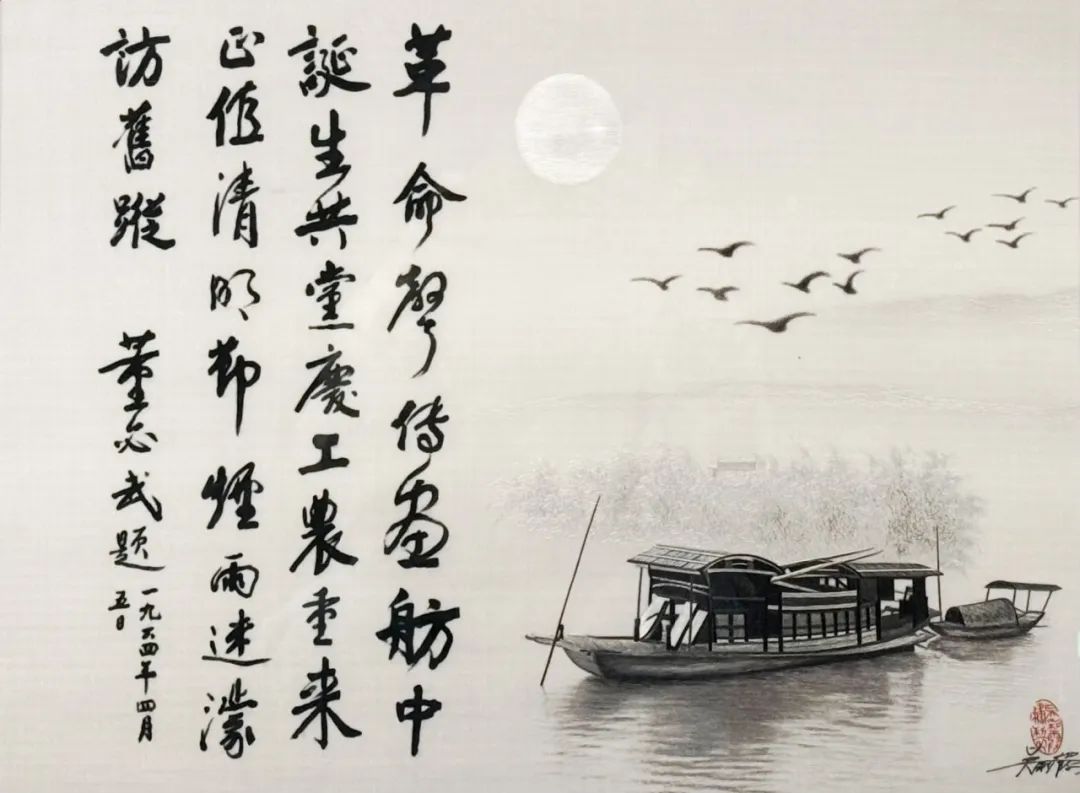 革命聲傳畫舫中
誕生共黨慶工農重来
正值清明節煙雨迷濛
訪舊蹤 董必武題
一九六四年四月
五日